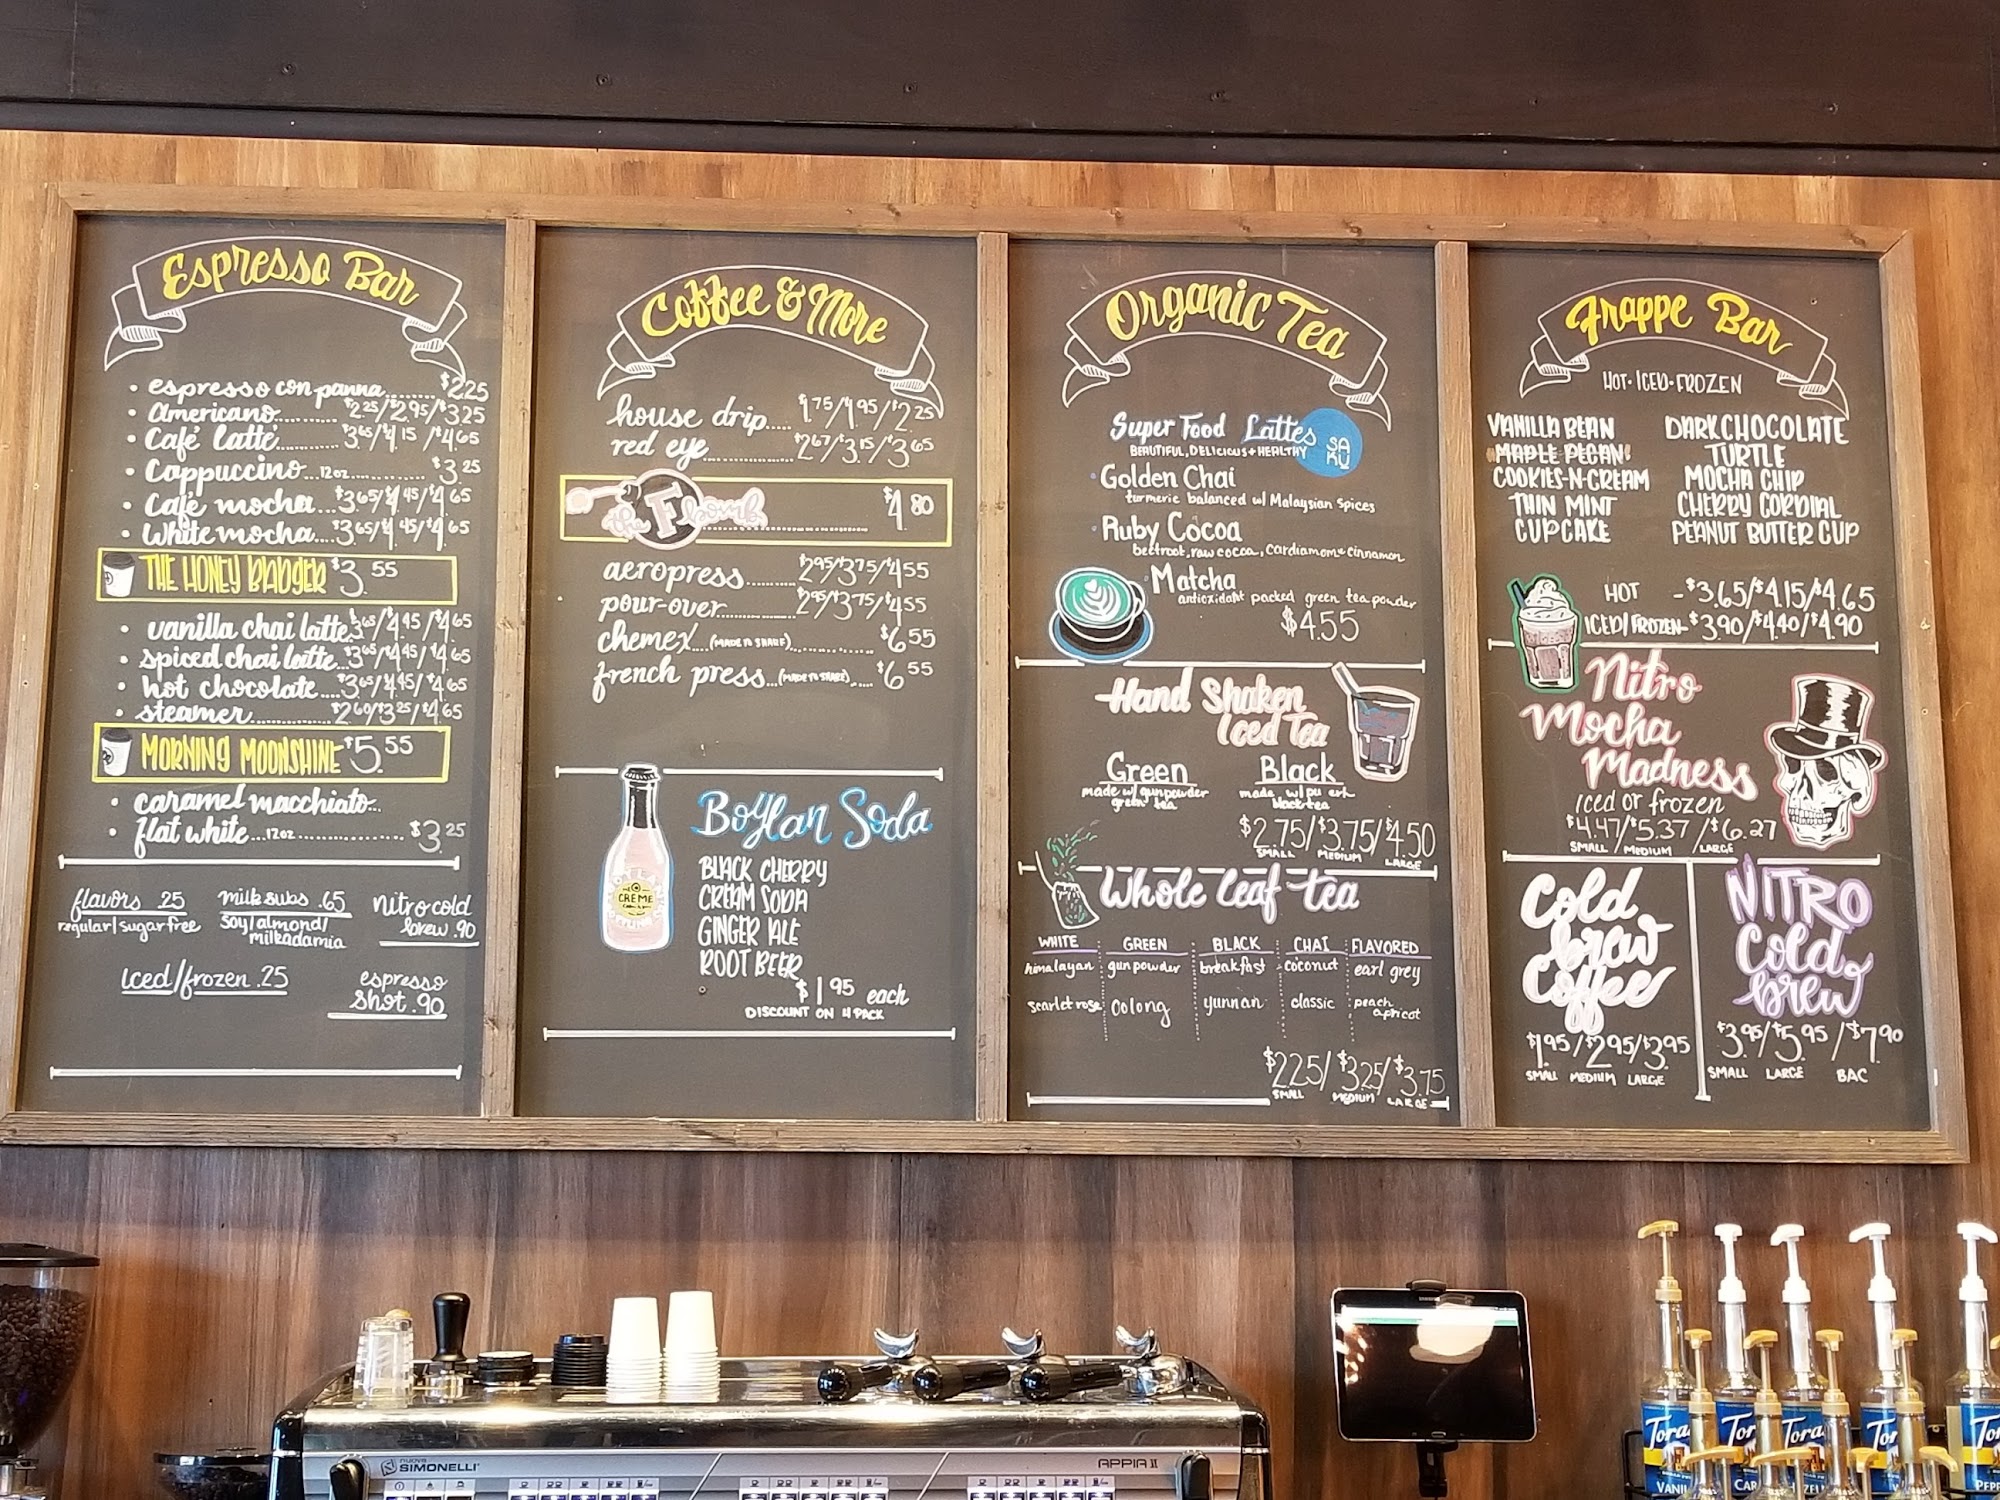 Espresso Bar
• espresso con panna........$2.25
• Americano........$2.25/$2.95/$3.25
• Café latte........$3.65/$4.15/$4.65
• Cappuccino...12oz........$3.25
• Café mocha...$3.65/$4.45/$4.65
• White mocha....$3.65/$4.45/$4.65
THE HONEY BADGER $3.55
• vanilla chai latte $3.65/$4.45/$4.65
• spiced chai latte...$3.65/$4.45/$4.65
• hot chocolate....$3.65/$4.45/$4.65
• steamer.............$2.60/$3.25/$4.65
MORNING MOONSHINE $5.55
• caramel macchiato...
• flat white...12oz.................$3.25
flavors .25
regular/sugar free
milk subs .65
soy/almond/
milkadamia
nitro cold
brew .90
iced/frozen .25
espresso
shot .90
Coffee & More
house drip.....$1.75/$1.95/$2.25
red eye..............$2.67/$3.15/$3.65
the F bomb.......................$4.80
aeropress........$2.95/$3.75/$4.55
pour-over...........$2.95/$3.75/$4.55
chemex...(MADE TO SHARE)..............$6.55
french press...(MADE TO SHARE).....$6.55
CREME
Boylan Soda
BLACK CHERRY
CREAM SODA
GINGER ALE
ROOT BEER
$1.95 each
DISCOUNT ON 4 PACK
Organic Tea
Super Food Lattes
BEAUTIFUL, DELICIOUS + HEALTHY
SA
KU
• Golden Chai
turmeric balanced w/ Malaysian spices
• Ruby Cocoa
beetroot, raw cocoa, cardiamom & cinnamon
• Matcha
antioxidant packed green tea powder
$4.55
Hand Shaken
Iced Tea
Green
made w/ gunpowder
green tea
Black
made w/ pu erh
black tea
$2.75/$3.75/$4.50
SMALL MEDIUM LARGE
Whole leaf tea
WHITE GREEN BLACK CHAI FLAVORED
himalayan gunpowder breakfast coconut earl grey
scarlet rose oolong yunnan classic peach
apricot
$2.25/$3.25/$3.75
SMALL MEDIUM LARGE
Frappe Bar
HOT • ICED • FROZEN
VANILLA BEAN DARK CHOCOLATE
MAPLE PECAN TURTLE
COOKIES-N-CREAM MOCHA CHIP
THIN MINT CHERRY CORDIAL
CUPCAKE PEANUT BUTTER CUP
HOT -$3.65/$4.15/$4.65
ICED/FROZEN-$3.90/$4.40/$4.90
Nitro
Mocha
Madness
iced or frozen
$4.47/$5.37/$6.27
SMALL MEDIUM LARGE
Cold
brew
Coffee
$1.95/$2.95/$3.95
SMALL MEDIUM LARGE
NITRO
Cold
brew
$3.95/$5.95/$7.90
SMALL LARGE BAC
nuova
SIMONELLI
APPIA II
Tora Tora Tora Tor To
VANIL CAR